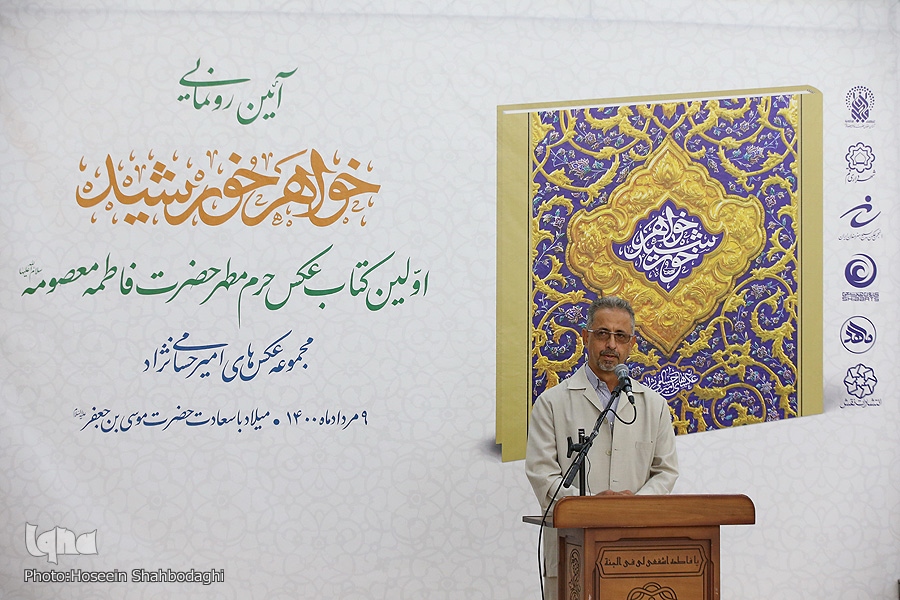 آئین رونمایی
خواهر خورشید
اولین کتاب عکس حرم مطهر حضرت فاطمه معصومه سلام‌الله‌علیها
مجموعه عکس‌های امیر حسامی نژاد
۹ مردادماه ۱۴۰۰ • میلاد باسعادت حضرت موسی بن جعفر
خواهر خورشید
شهرداری قم
ماهد
انتشارات نقش
یا فاطمة اشفعی لی فی الجنة
iqna
Photo:Hoseein Shahbodaghi